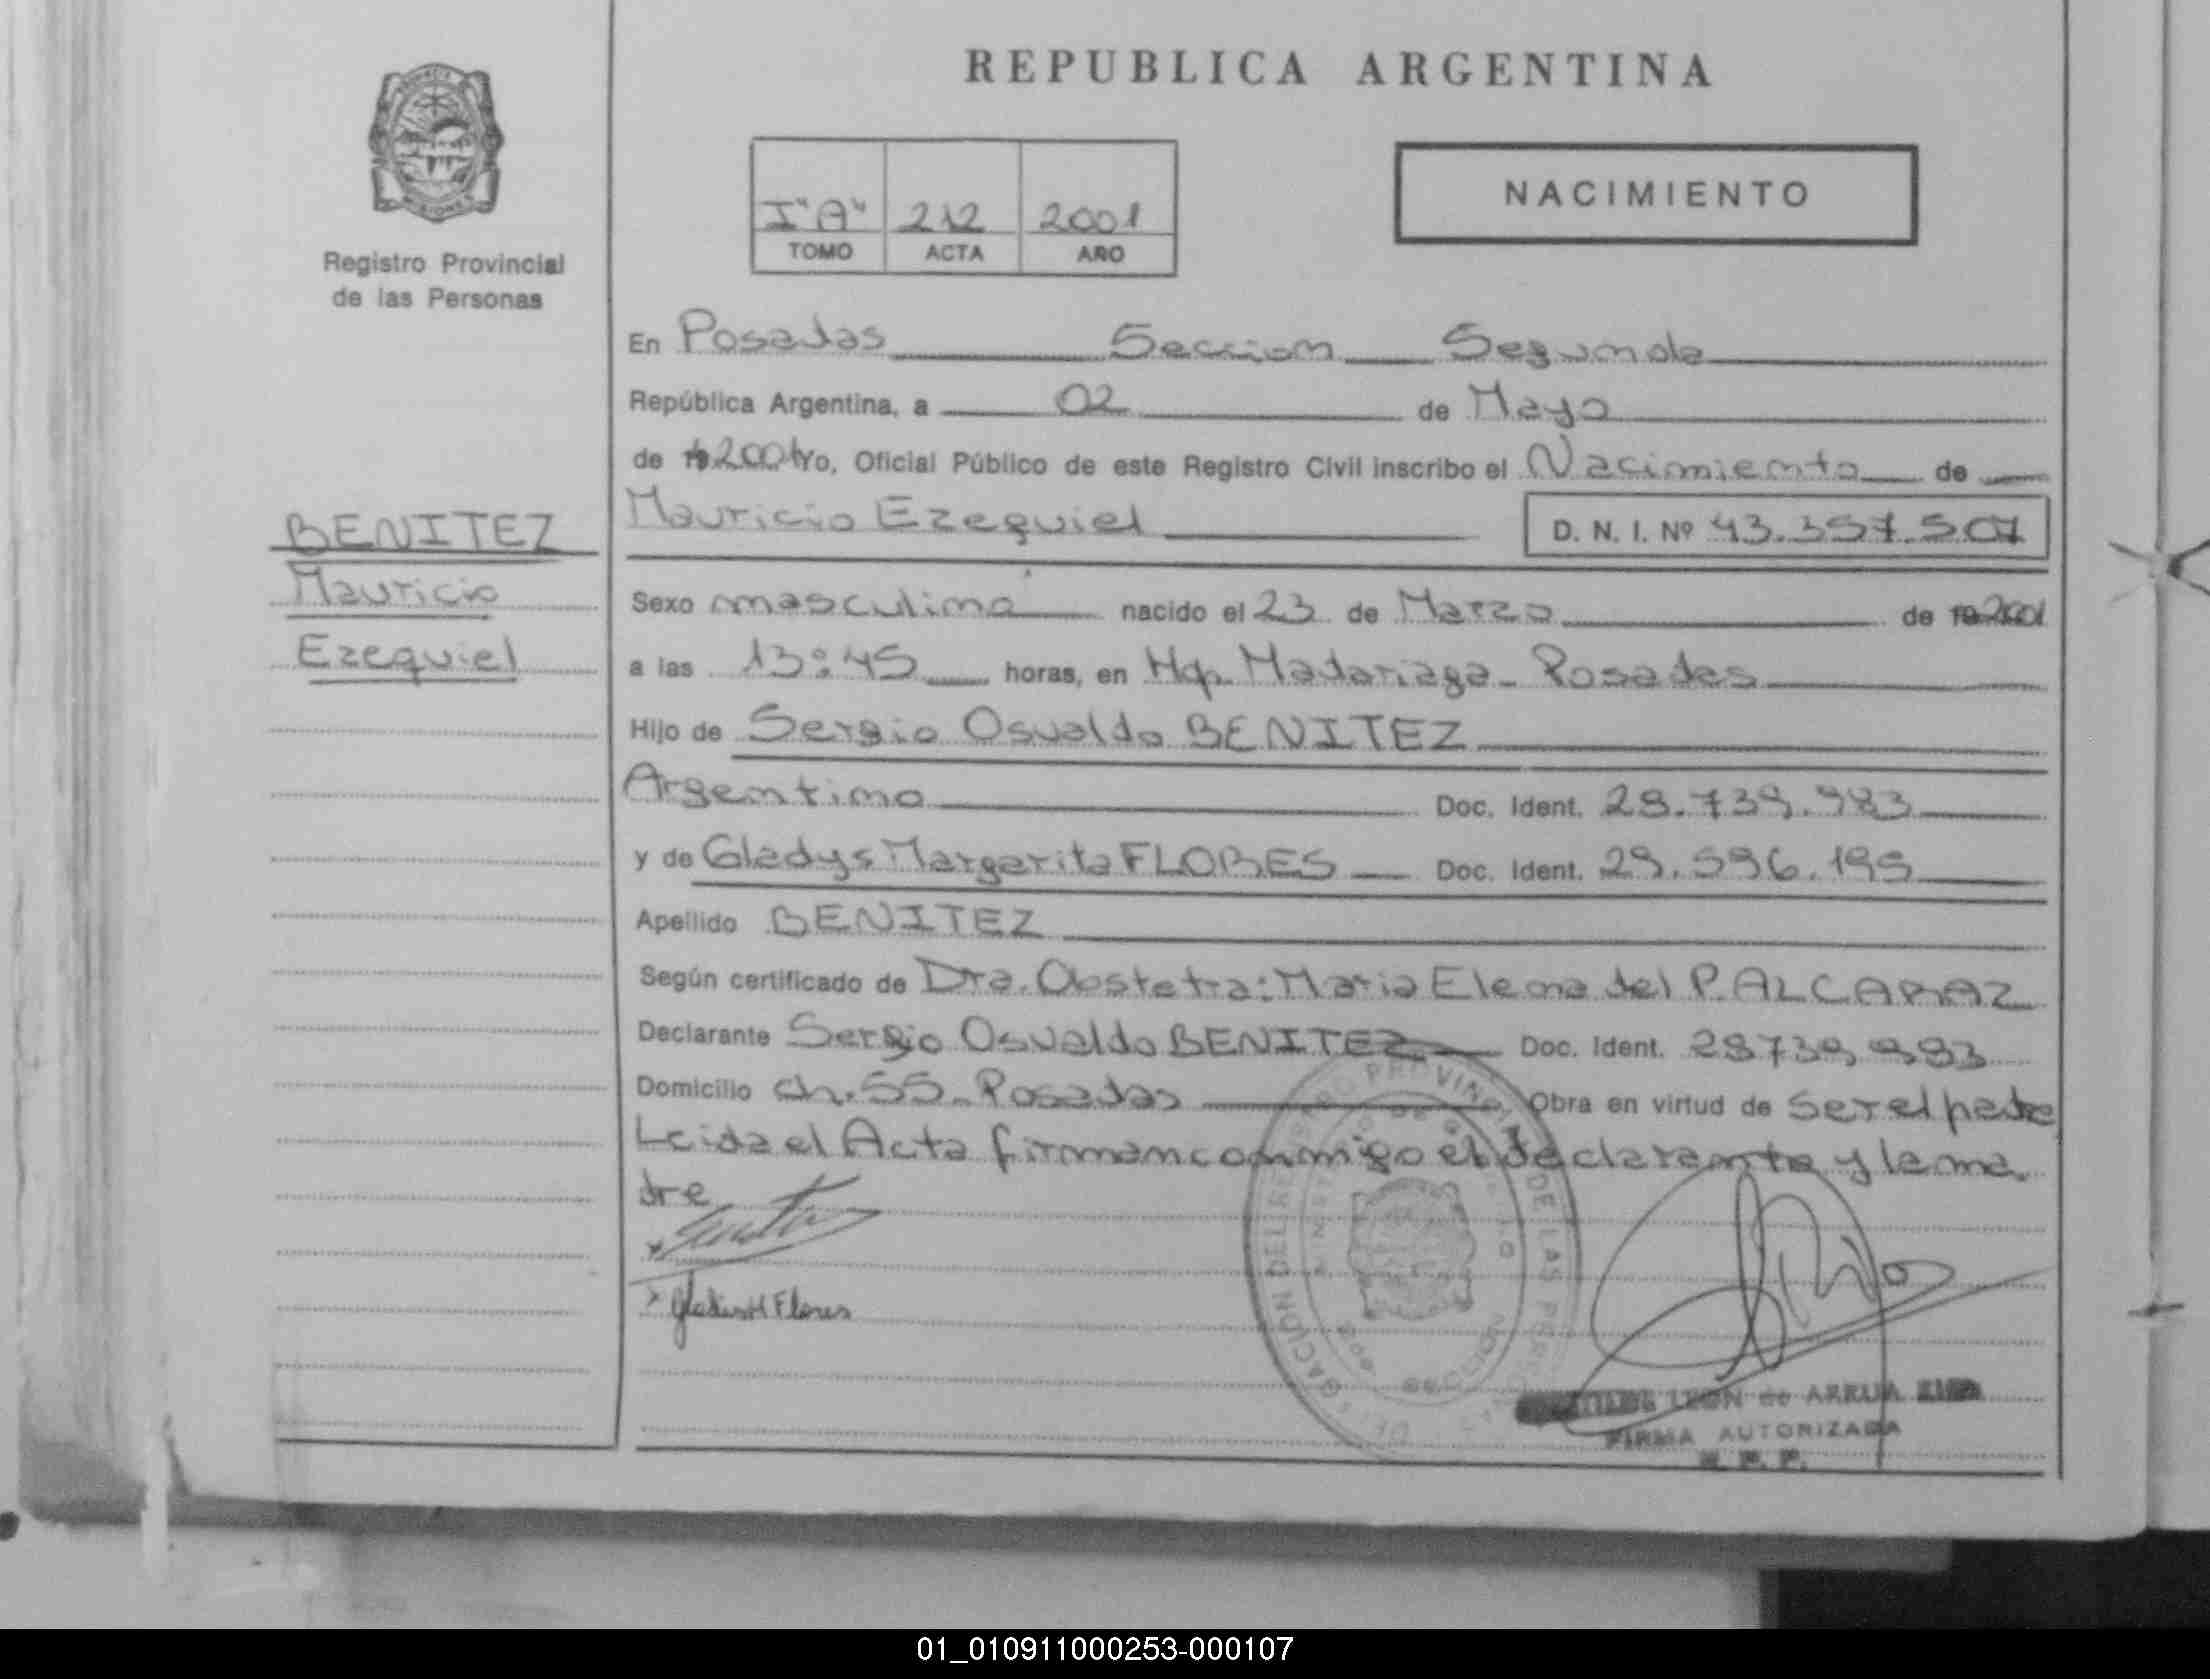 REPUBLICA ARGENTINA
MISIONES
Registro Provincial
de las Personas
NACIMIENTO
I "A" 212 2001
TOMO ACTA AÑO
En Posadas Seccion Segunda
República Argentina, a 02 de Mayo
de 19 2001 yo, Oficial Público de este Registro Civil inscribo el Nacimiento de
Mauricio Ezequiel D. N. I. Nº 43.357.507
BENITEZ
Mauricio
Ezequiel
Sexo masculino nacido el 23 de Marzo de 19 2001
a las 13:45 horas, en Hop. Madariaga - Posadas
Hijo de Sergio Osvaldo BENITEZ
Argentino Doc. Ident. 28.739.983
y de Gladys Margarita FLORES Doc. Ident. 29.596.195
Apellido BENITEZ
Según certificado de Dra. Obstetra: Maria Elena del P. ALCARAZ
Declarante Sergio Osvaldo BENITEZ Doc. Ident. 28739.983
Domicilio ch. 55 - Posadas Obra en virtud de ser el padre
Leida el Acta firman conmigo el declarante y la ma
dre
Gladis M Flores
DELEGACION DEL REGISTRO PROVINCIAL DE LAS PERSONAS
LEON de ARRUA
FIRMA AUTORIZADA
R. P. P.
01_010911000253-000107